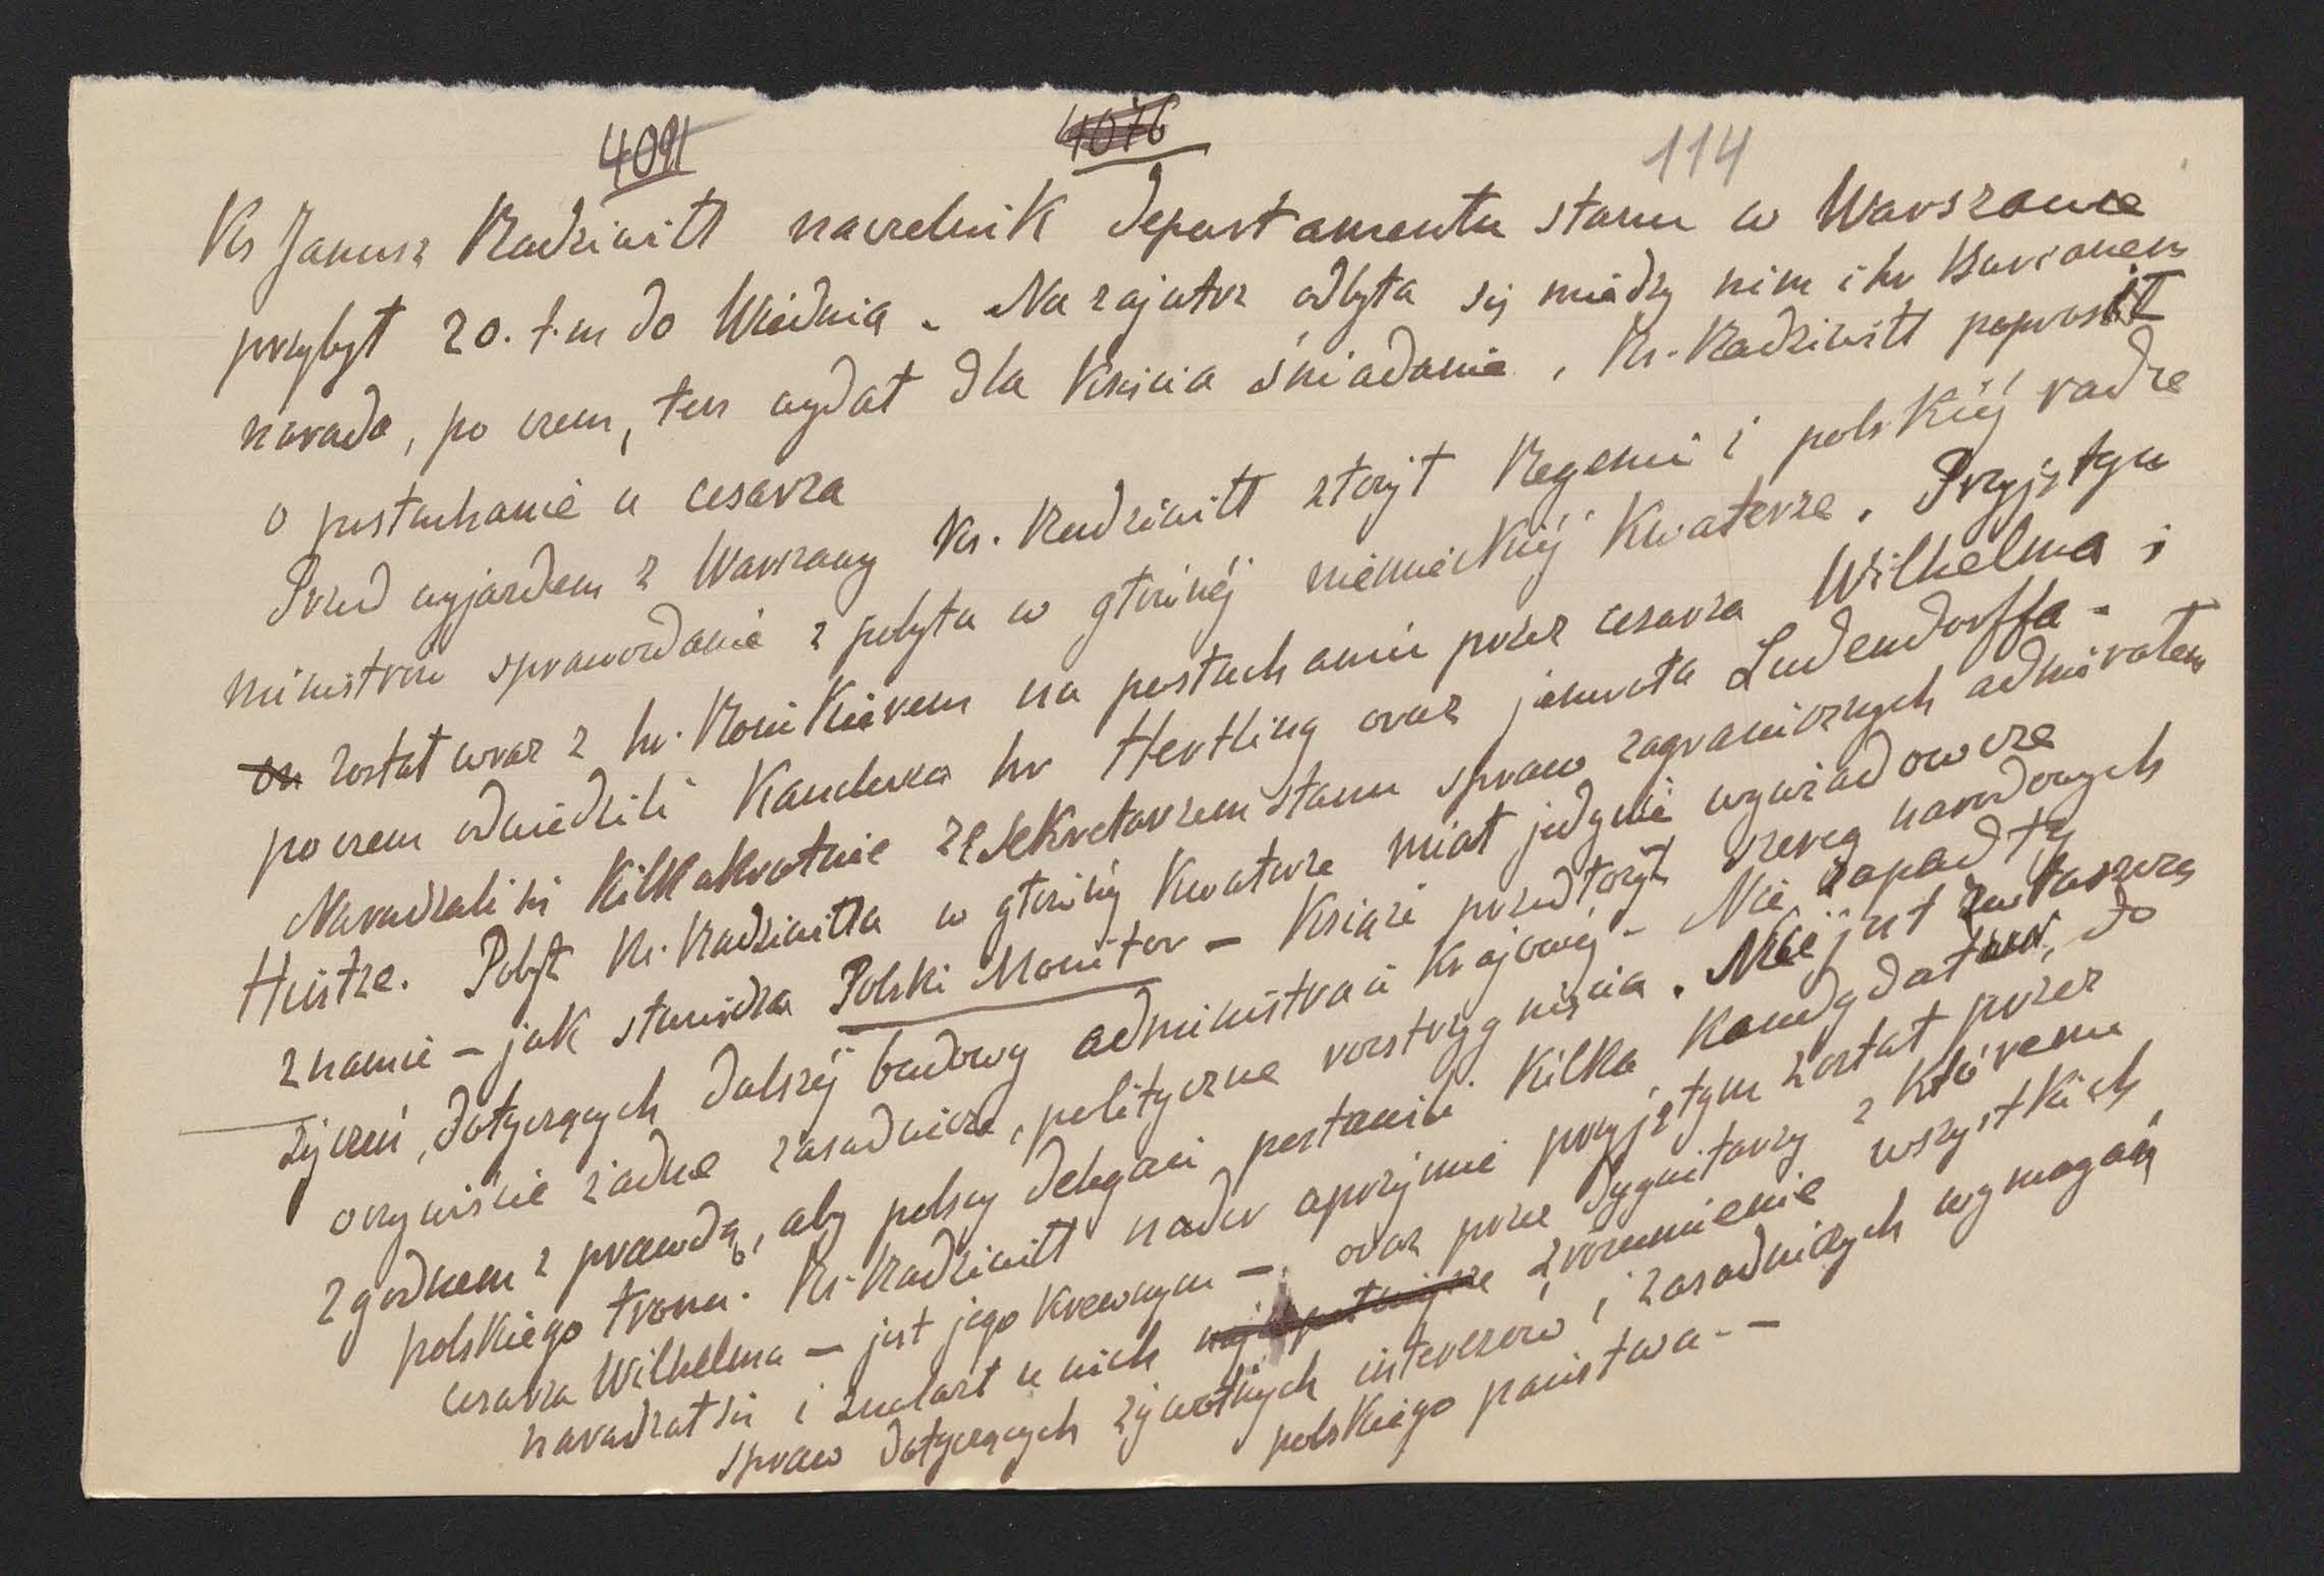 4091 4076 114
Ks Janusz Radziwiłł naczelnik departamentu stanu w Warszawie
przybył 20. t.m do Wiednia. Na zajutrz odbyła się między nim i hr Burianem
narada, po czem, ten wydał dla księcia śniadanie. Ks. Radziwiłł poprosił
o posłuchanie u cesarza
Przed wyjazdem z Warszawy Ks. Radziwiłł złożył Regencii i polskiéj radzie
ministrów sprawozdanie z pobytu w głównéj niemieckiéj Kwaterze. Przyjętym
on został wraz z hr. Ronikierem na posłuchaniu przez cesarza Wilhelma i
poczem odwiedzili Kanclerza hr Hertling oraz jenerała Ludendorffa -
Naradzali się Kilkakrotnie ze sekretarzem stanu spraw zagranicznych admirałem
Huitze. Pobyt Ks. Radziwiłła w głównéj Kwaterze miał jedynie wywiadowcze
znamie - jak stwierdza Polski Monitor - Książe przedłożył szereg narodowych
życzeń, dotyczących dalszéj budowy administracii Krajowéj - Nie zapadły
oczywiście żadne zasadnicze, polityczne rozstrzygnięcia. Nie jest zwłaszcza
zgodnem z prawdą, aby polscy delegaci postawili Kilka Kandydatur, do
polskiego tronu. Ks. Radziwiłł nader uprzejmie przyjętym został przez
cesarza Wilhelma - jest jego Krewnym - oraz prze dygnitarzy z któremu
naradzał się i znalazł u nich zrozumienie wszystkich
spraw dotyczących żywotnych interesów i zasadniczych wymogań
polskiego państwa - -